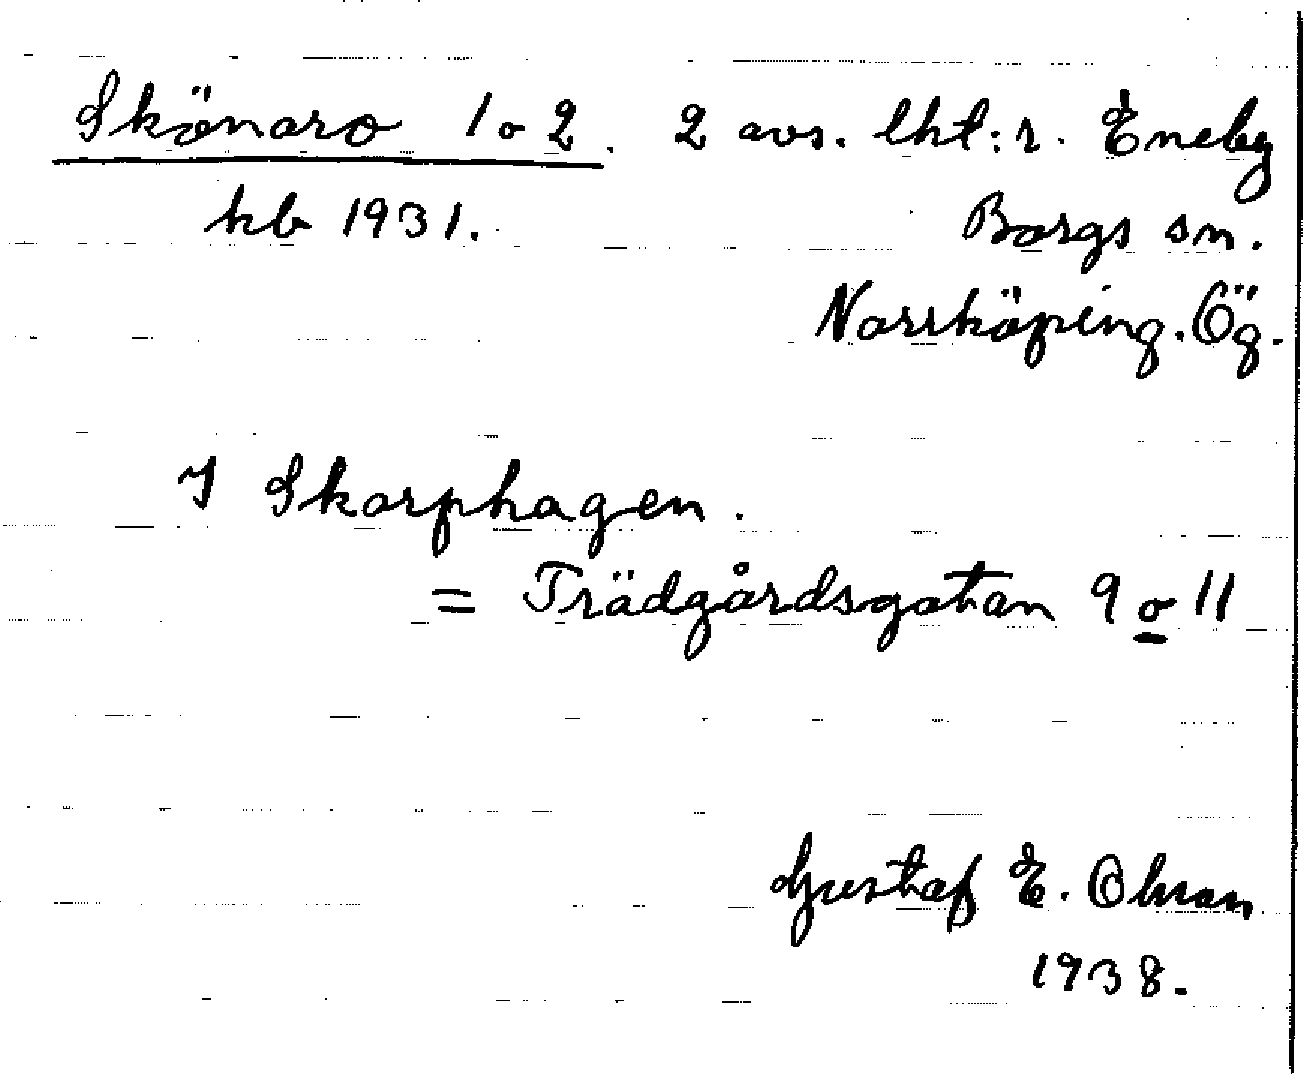 Skönaro 1 o 2. 2 avs. lht:r. Eneby
kb 1931. Borgs sn.
Norrköping. Ög.
I Skarphagen.
= Trädgårdsgatan 9 o 11
Gustaf E. Olsson
1938.